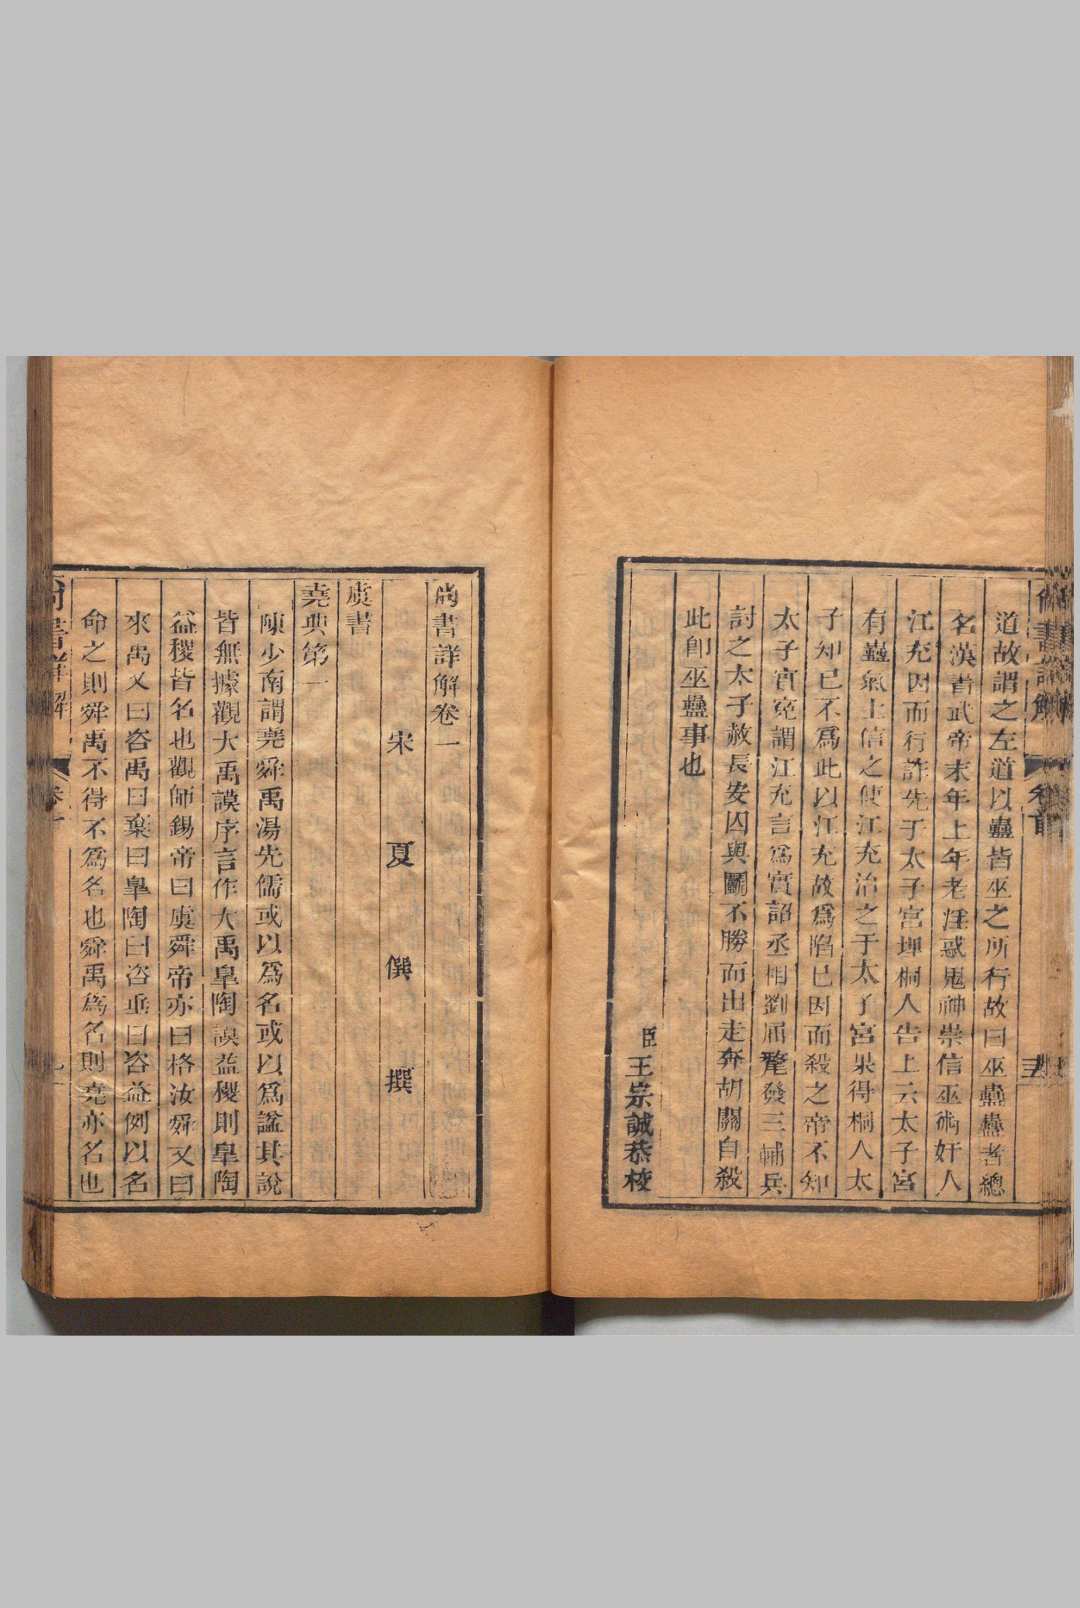 道故謂之左道以蠱皆巫之所行故曰巫蠱蠱者總
名漢書武帝末年上年老淫惑鬼神崇信巫術奸人
江充因而行詐先于太子宮埋桐人告上云太子宮
有蠱氣上信之使江充治之于太子宮果得桐人太
子知已不為此以江充故為陷已因而殺之帝不知
太子實冤謂江充言為實詔丞相劉屈氂發三輔兵
討之太子赦長安囚與鬭不勝而出走奔胡關自殺
此卽巫蠱事也
臣王宗誠恭校
尚書詳解
卷首
尚書詳解卷一
宋 夏 僎 撰
虞書
堯典第一
陳少南謂堯舜禹湯先儒或以為名或以為諡其說
皆無據觀大禹謨序言作大禹皐陶謨益稷則皐陶
益稷皆名也觀師錫帝曰虞舜帝亦曰格汝舜又曰
來禹又曰咨禹曰棄曰皐陶曰咨垂曰咨益例以名
命之則舜禹不得不為名也舜禹為名則堯亦名也
尚書詳解
卷一